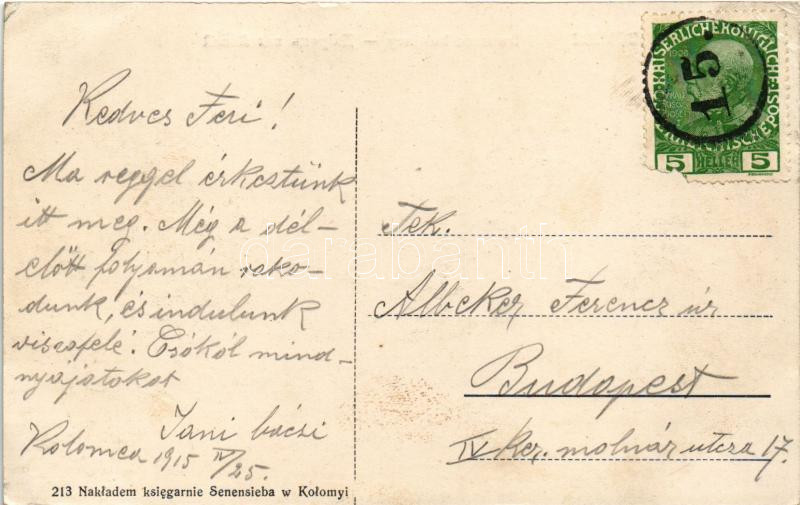 Kedves Feri!
Ma reggel érkeztünk
itt meg. Még a dél-
előtt folyamán rako-
dunk, és indulunk
visszafelé. Csókól mind-
nyajatokat
Jani bácsi
Kolomea 1915 IV/25.
213 Nakładem księgarnie Senensieba w Kołomyi
KAISERLICHE KÖNIGLICHE
ÖSTERREICHISCHE POST
1908
5 HELLER 5
15.
Tek.
Albeker Ferencz úr
Budapest
IV Ker. molnár utcza 17.
darabanth